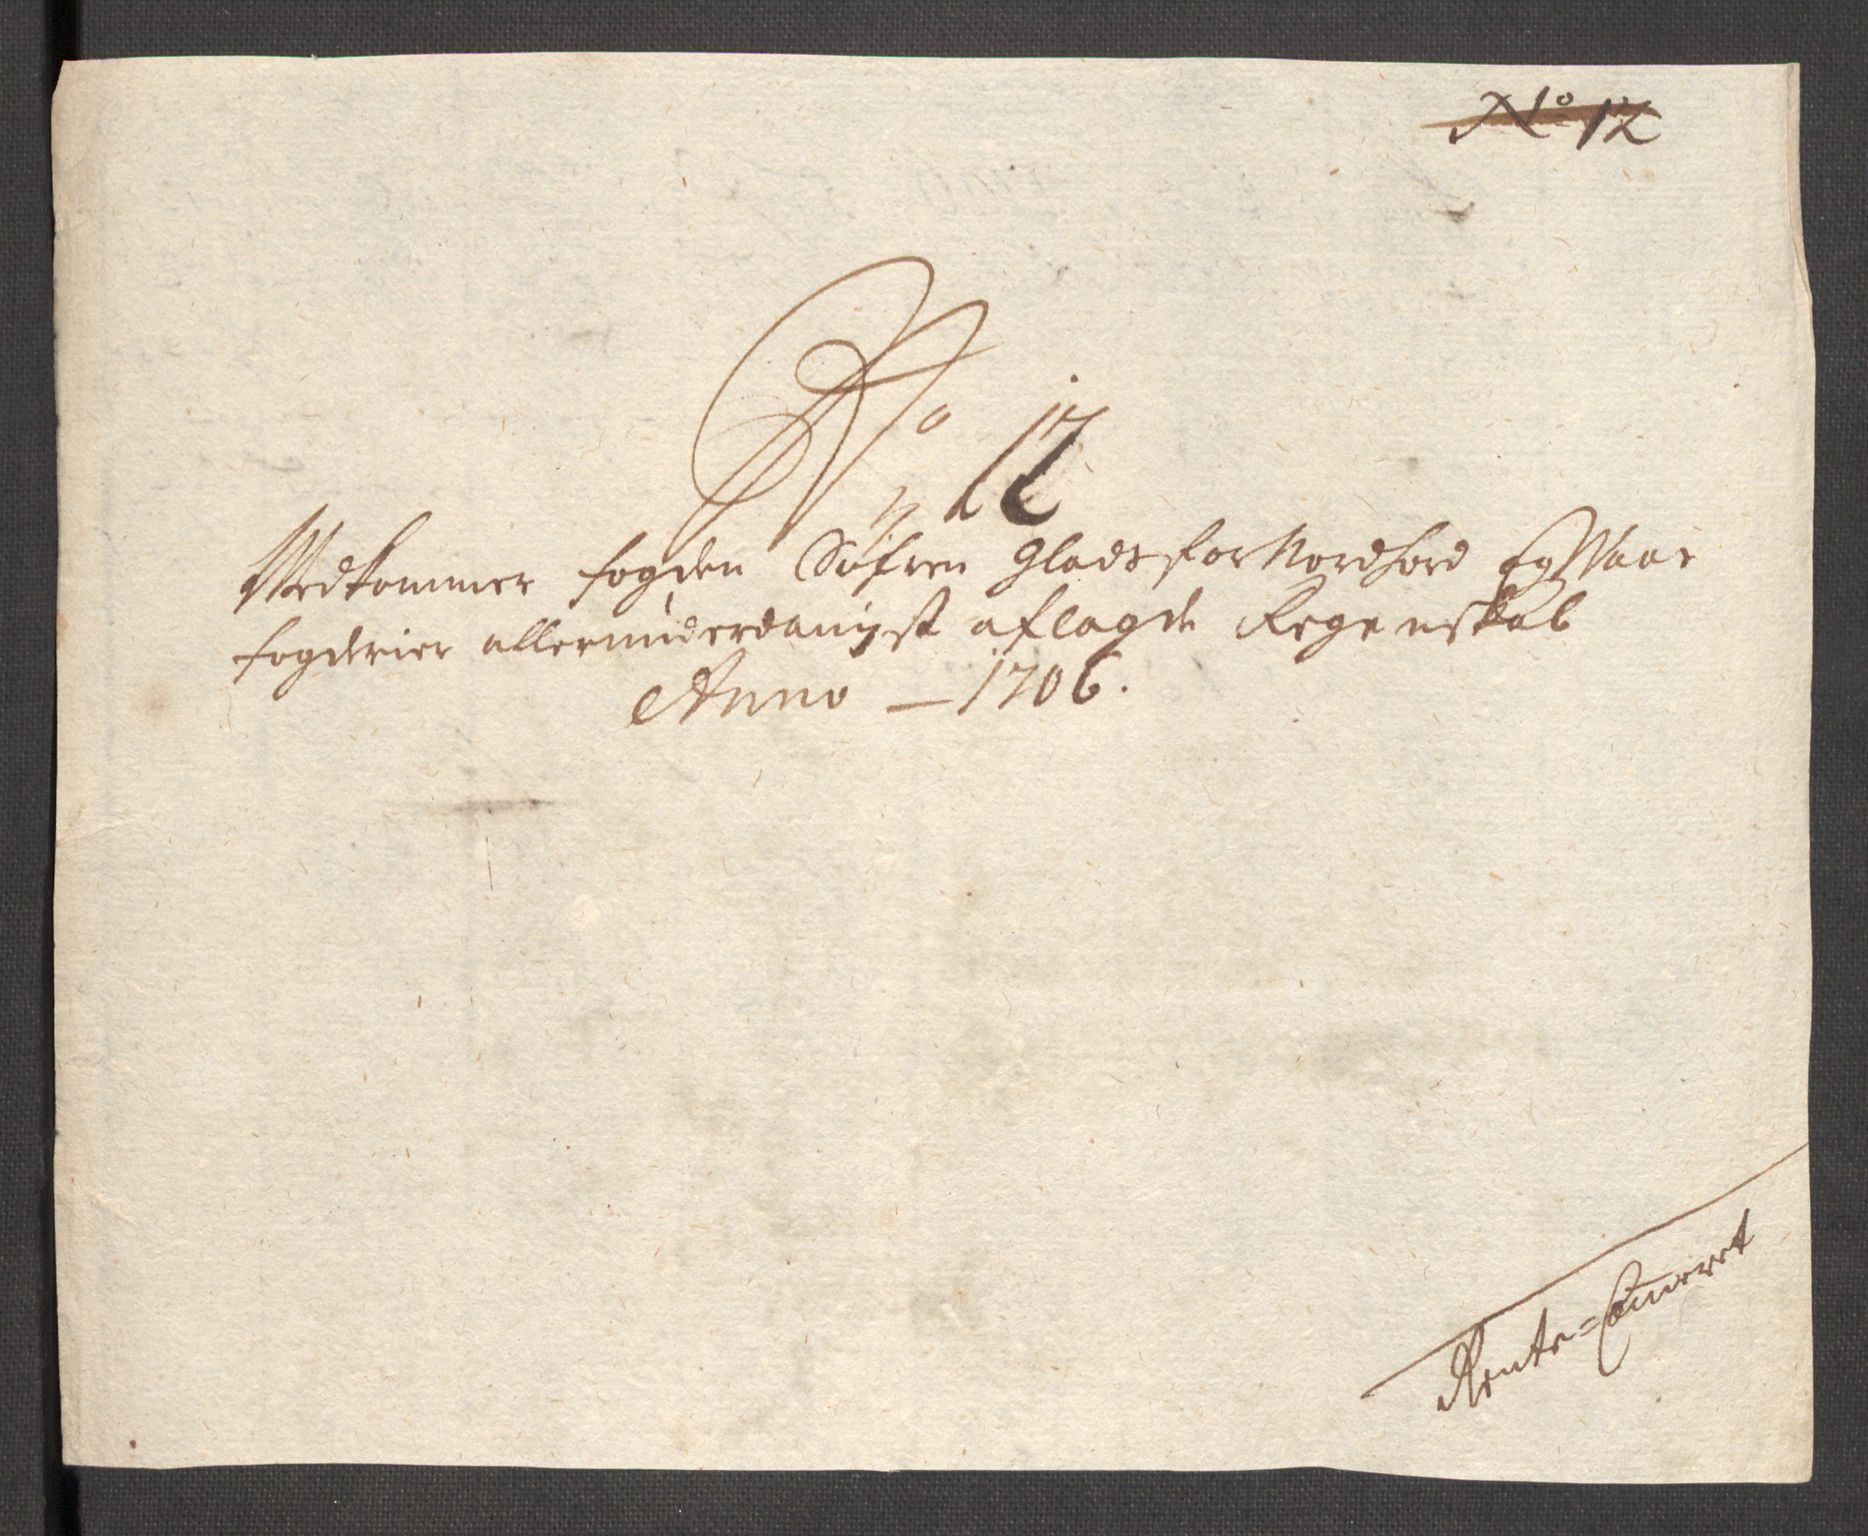 No 12
No 12
Vedkommer fogden Søfren Glads for Nordhord og Waas
fogderier allerunderdanigst aflagde Regenskab
Anno — 1706.
Rente=Cammeret